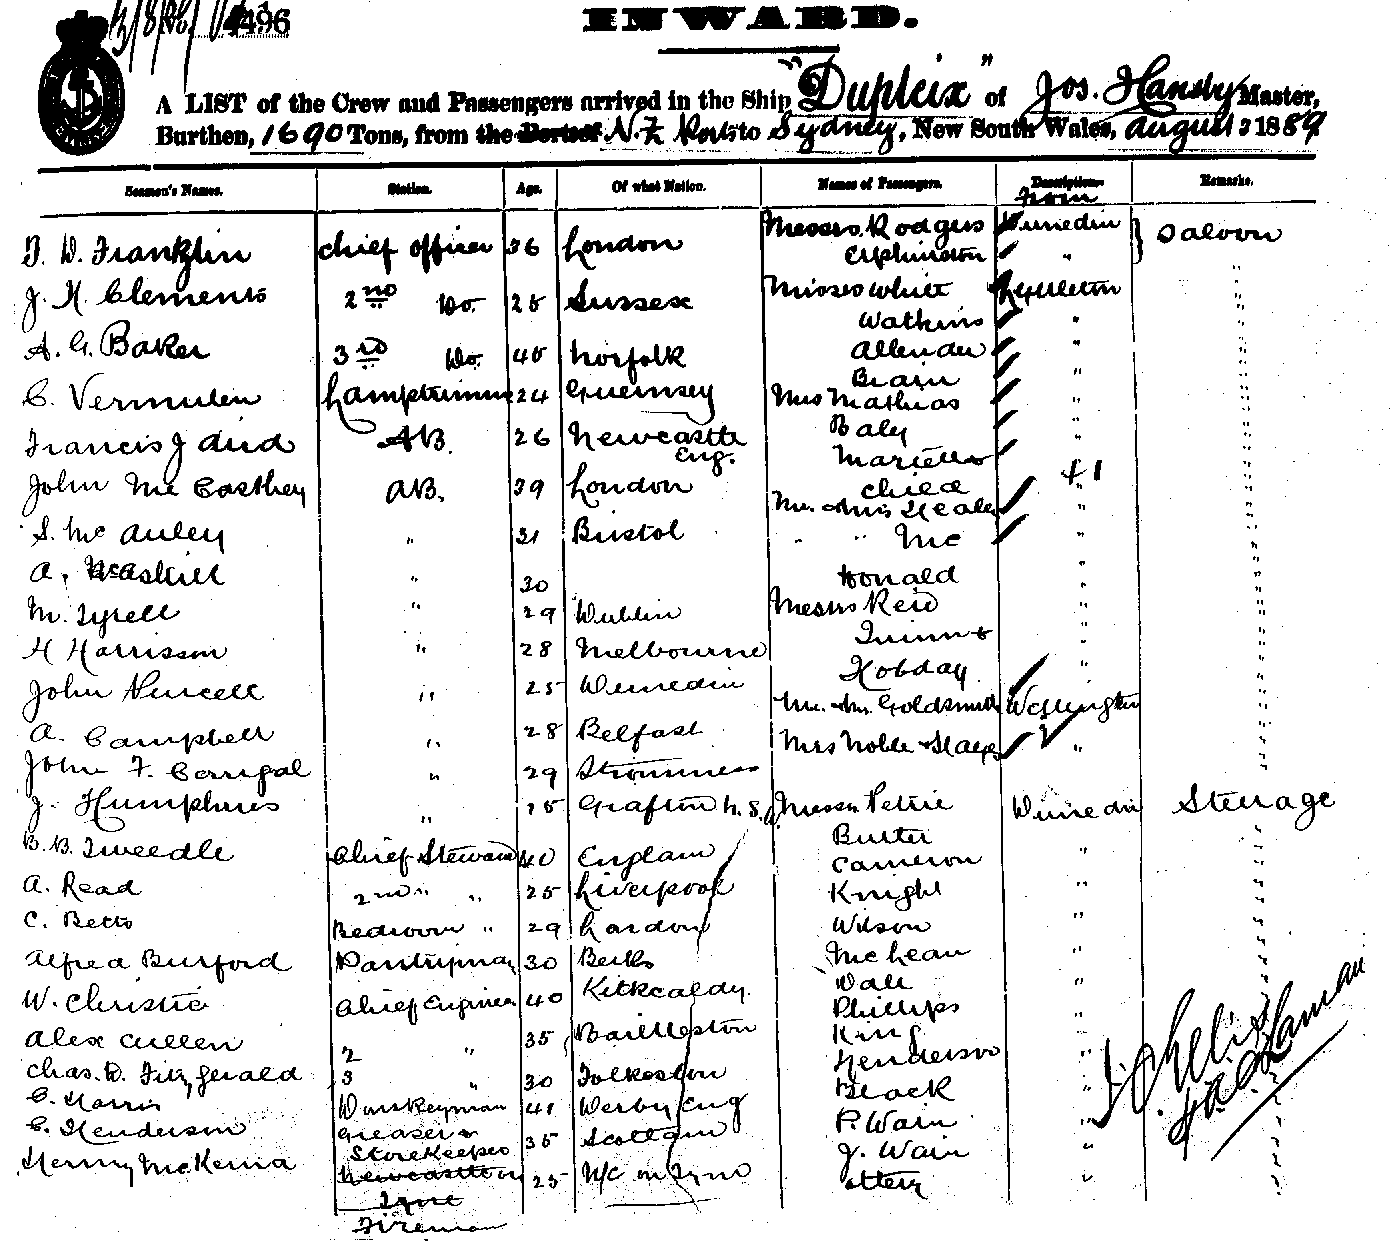 4496
INWARD.
A LIST of the Crew and Passengers arrived in the Ship "Dupleix" of Jos. Handy Master,
Burthen, 1690 Tons, from the Port of N.Z Ports to Sydney, New South Wales, August 3 1889
Seamen's Names. Station. Age. Of what Nation. Names of Passengers. Description. Remarks.
from
Messrs. Rodgers Dunedin
Franklin chief officer 36 London Elphinston " Saloon
J. H. Clements 2nd Do. 25 Sussex Misses White Lyttleton
Watkins "
A. G. Baker 3rd Do. 40 Norfolk Allender "
Brain "
C. Vermulen Lamptrimmer 24 Guernsey Mrs Mathias "
Baly "
Francis J AB. 26 Newcastle Eng.
John Mc Casthey AB. 39 London child +1
Mr. & Mrs Healy "
S. Mc Auley " 31 Bristol " " Mc "
A. McAskill " 30 Donald "
M. Tyrell " 29 Dublin Messrs Reid "
H Harrison " 28 Melbourne Quinn & "
John Purcell " 25 Dunedin Hobday "
Mr. & Mrs. Goldsmith Wellington
A. Campbell " 28 Belfast Mrs Noble & "
John F. Corrigal " 29 Stromness
J. Humphries " 15 Grafton N.S.W. Messrs Petrie Dunedin Steerage
B. B. Tweedle Chief Steward 40 England Burter "
Cameron
A. Read 2nd " " 25 Liverpool Knight "
C. Betts Bedroom " 29 London Wilson "
Alfred Burford Pantryman 30 Berks McLean "
Dale
W. Christie Chief Engineer 40 Kirkcaldy Phillips "
Alex Cullen 2 " 35 Bailleston King
Henderson "
Chas. D. Fitzgerald 3 " 30 Folkeston Black "
C. Harris Donkeyman 41 Derby Eng P. Wain "
C. Henderson Greaser & Storekeeper 35 Scotland J. Wain "
Henry McKenna Newcastle on Tyne Fireman 25 N/C on Tyne Ottery "